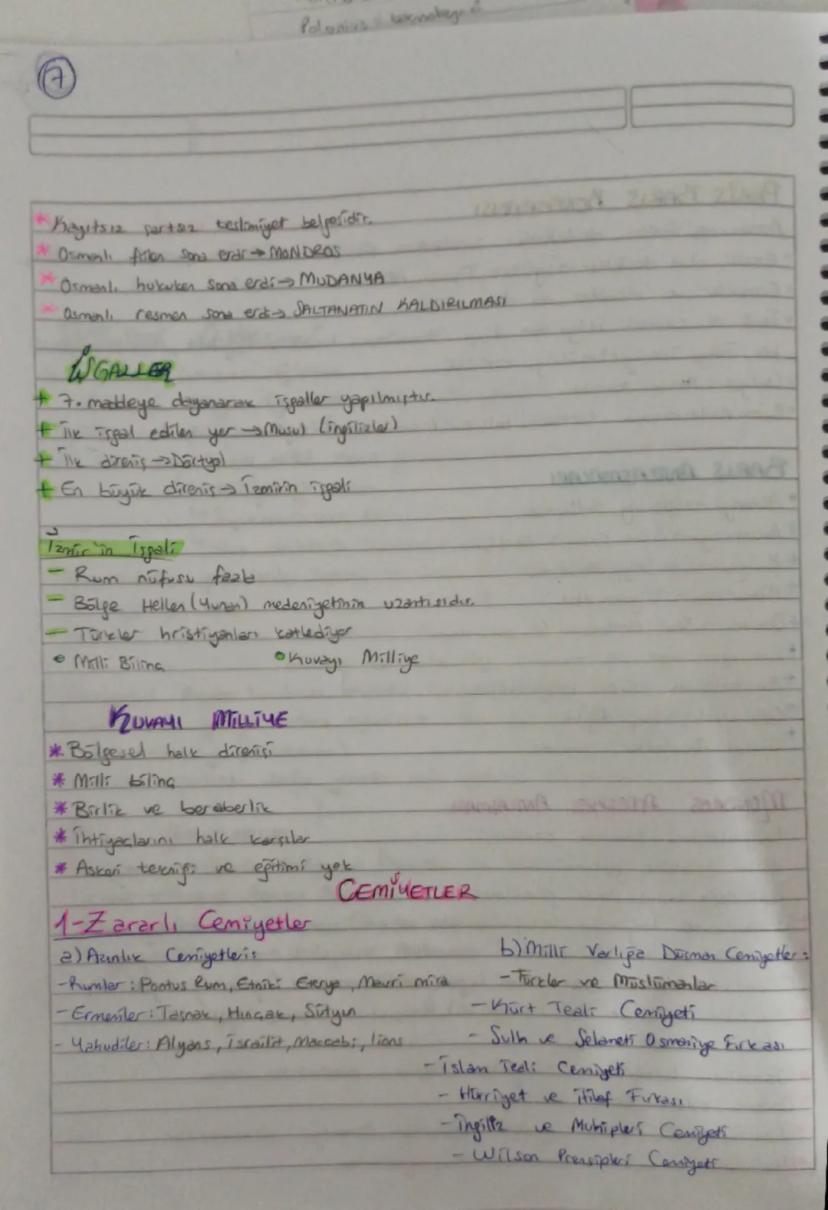 7
* Kayıtsız şartsız teslimiyet belgesidir.
* Osmanlı fiilen sona erdi → MONDROS
* Osmanlı hukuken sona erdi → MUDANYA
* Osmanlı resmen sona erdi → SALTANATIN KALDIRILMASI
İŞGALLER
+ 7. maddeye dayanarak işgaller yapılmıştır.
+ İlk işgal edilen yer → Musul (İngilizler)
+ İlk direniş → Dörtyol
+ En büyük direniş → İzmirin işgali
İzmir'in İşgali
- Rum nüfusu fazla
- Bölge Hellen (Yunan) medeniyetinin uzantısıdır.
- Türkler hristiyanları katlediyor
• Milli Bilinç • Kuvayı Milliye
KUVAYI MİLLİYE
* Bölgesel halk direnişi
* Milli bilinç
* Birlik ve beraberlik
* İhtiyaçlarını halk karşılar
* Askeri tekniği ve eğitimi yok
CEMİYETLER
1-Zararlı Cemiyetler
a) Azınlık Cemiyetleri:
- Rumlar: Pontus Rum, Etniki Eterya, Mavri mira
- Ermeniler: Taşnak, Hınçak,
- Yahudiler: Alyans, İsrailit, Maccabi, lions
b) Milli Varlığa Düşman Cemiyetler:
- Türkler ve Müslümanlar
- Kürt Teali Cemiyeti
- Sulh ve Selameti Osmaniye Fırkası
- İslam Teali Cemiyeti
- Hürriyet ve İtilaf Fırkası
- İngiliz ve Muhipleri Cemiyeti
- Wilson Prensipleri Cemiyeti